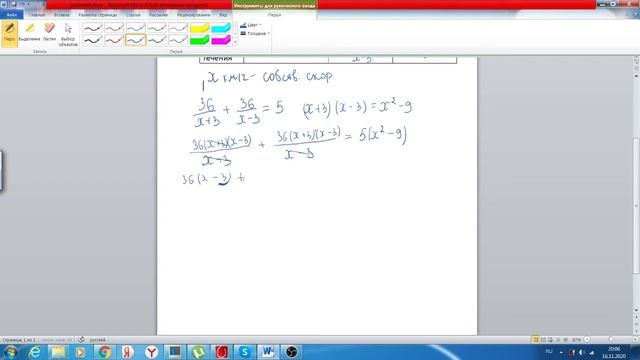 Инструменты для рукописного ввода
Файл Главная Вставка Разметка страницы Ссылки Рассылки Рецензирование Вид Перья
Перо Выделение Ластик Выбор объектов
Цвет
Толщина
Запись Перья
течения x-3
x км/ч - собств. скор
36/(x+3) + 36/(x-3) = 5 (x+3)(x-3) = x²-9
36(x+3)(x-3)/(x+3) + 36(x+3)(x-3)/(x-3) = 5(x²-9)
36(x-3) +
Страница: 1 из 1 русский 87%
RU 20:06
16.11.2020